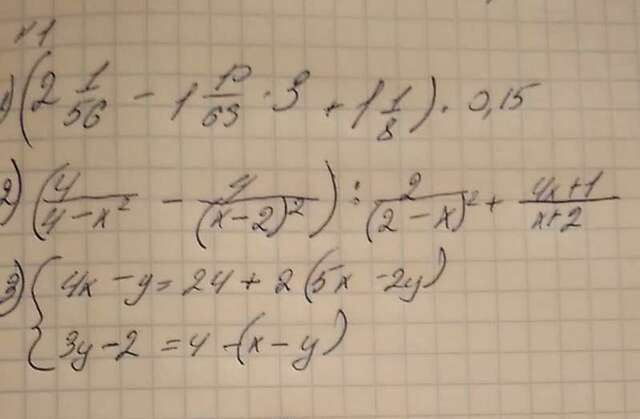 №1
1) (2 1/56 - 1 10/63 · 9 + 1 1/8) · 0,15
2) (4/(4-x²) - 4/(x-2)²) : 2/(2-x)² + (4x+1)/(x+2)
3) { 4x - y = 24 + 2(5x - 2y)
3y - 2 = 4 - (x - y)